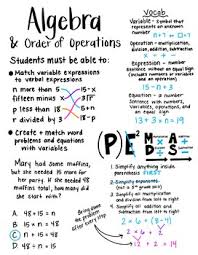 Algebra
& Order of Operations
Students must be able to:
• Match variable expressions
to verbal expressions
n more than 5
fifteen minus x
p increased by 8
r divided by 3
5-x
3√r
p+5
• Create + match word
problems and equations
with variables
Mary had some muffins,
but she needed 15 more for
her party. If she needed 48
muffins total, how many did
she start with?
A 48 + 15 = n
B n - 15 = 48
C n + 15 = 48
D 48 ÷ 15 = n
Bring down
the problem
after every
step
Vocab
Variable - symbol that
represents an unknown
number
n + 7
Operation - multiplication,
division, addition, subtraction
x ÷ + -
Expression - number
sentence without an equal sign
(includes numbers or variables
and an operation)
n + 5
Equation - a number
sentence with numbers,
variables, operations, and
an equal sign
n + 5 = 13
(P) E² M D A S
1 Simplify anything inside
parenthesis first!
2 Simplify exponents
3 Simplify all multiplication
and division from left to right
4 Simplify all addition and
subtraction from left to right
2 × 6
12 + 2 = 14